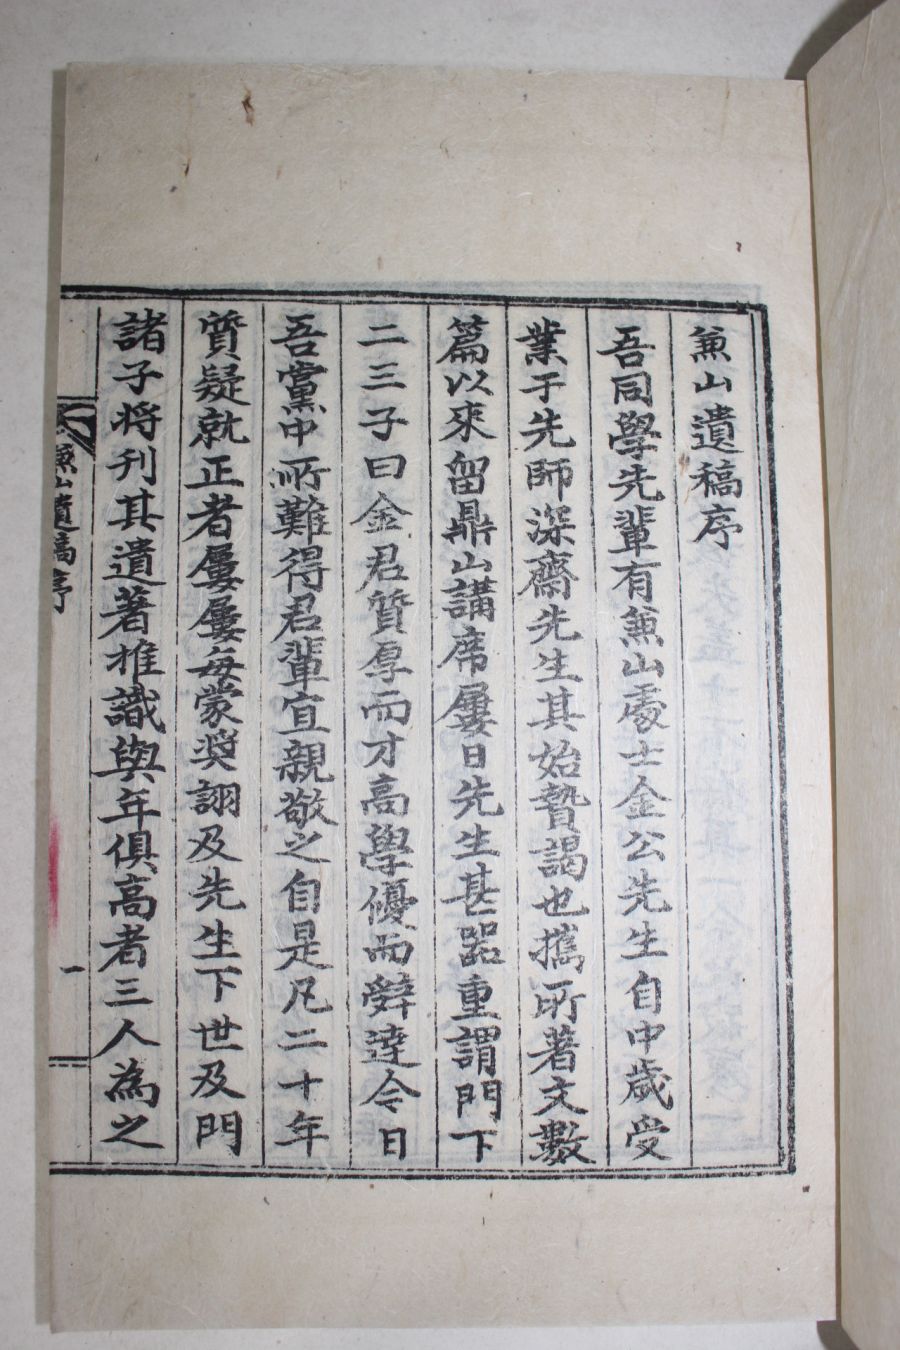 兼山遺稿序
吾同學先輩有兼山處士金公先生自中歲受
業于先師深齋先生其始贄謁也攜所著文數
篇以來留鼎山講席屢日先生甚器重謂門下
二三子曰金君質厚而才高學優而辤達今日
吾黨中所難得君輩宜親敬之自是凡二十年
質疑就正者屢屢每蒙奬詡及先生下世及門
諸子将刊其遺著推識與年俱高者三人為之
兼山遺稿序
一